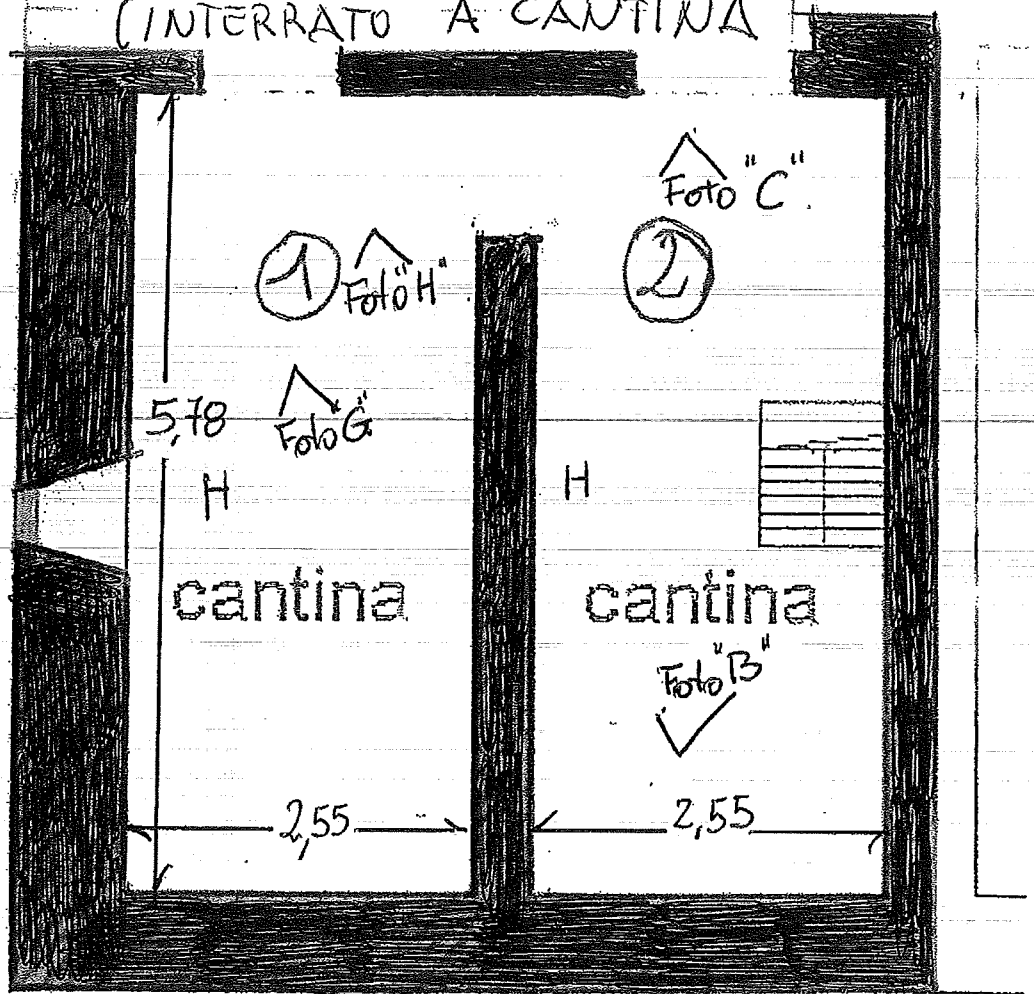 (INTERRATO A CANTINA
Foto "C".
1
Foto "H"
2
5,78
Foto G"
H
H
cantina
cantina
Foto "B"
2,55
2,55